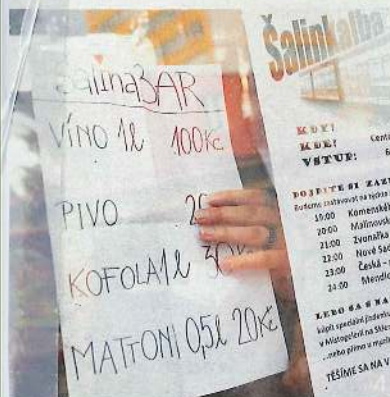 ŠalinaBAR
VÍNO 1l 100Kč
PIVO
KOFOLA 1l 30K
MATTONI 0,5l 20Kč
Šalinkalba
KDY?
KDE? Cent
VSTUP: 6
DOJDĚTE SI ZAZ
Budeme zastavovat na
19:00 Komenskéh
20:00 Malinovsk
21:00 Zvonařka
22:00 Nové Sad
23:00 Česká -
24:00 Mendl
LEBO SA S NA
kúpit speciální jízdenku
v Místogelerii na Skle
...nebo přímo v
TĚŠÍME SA NA V